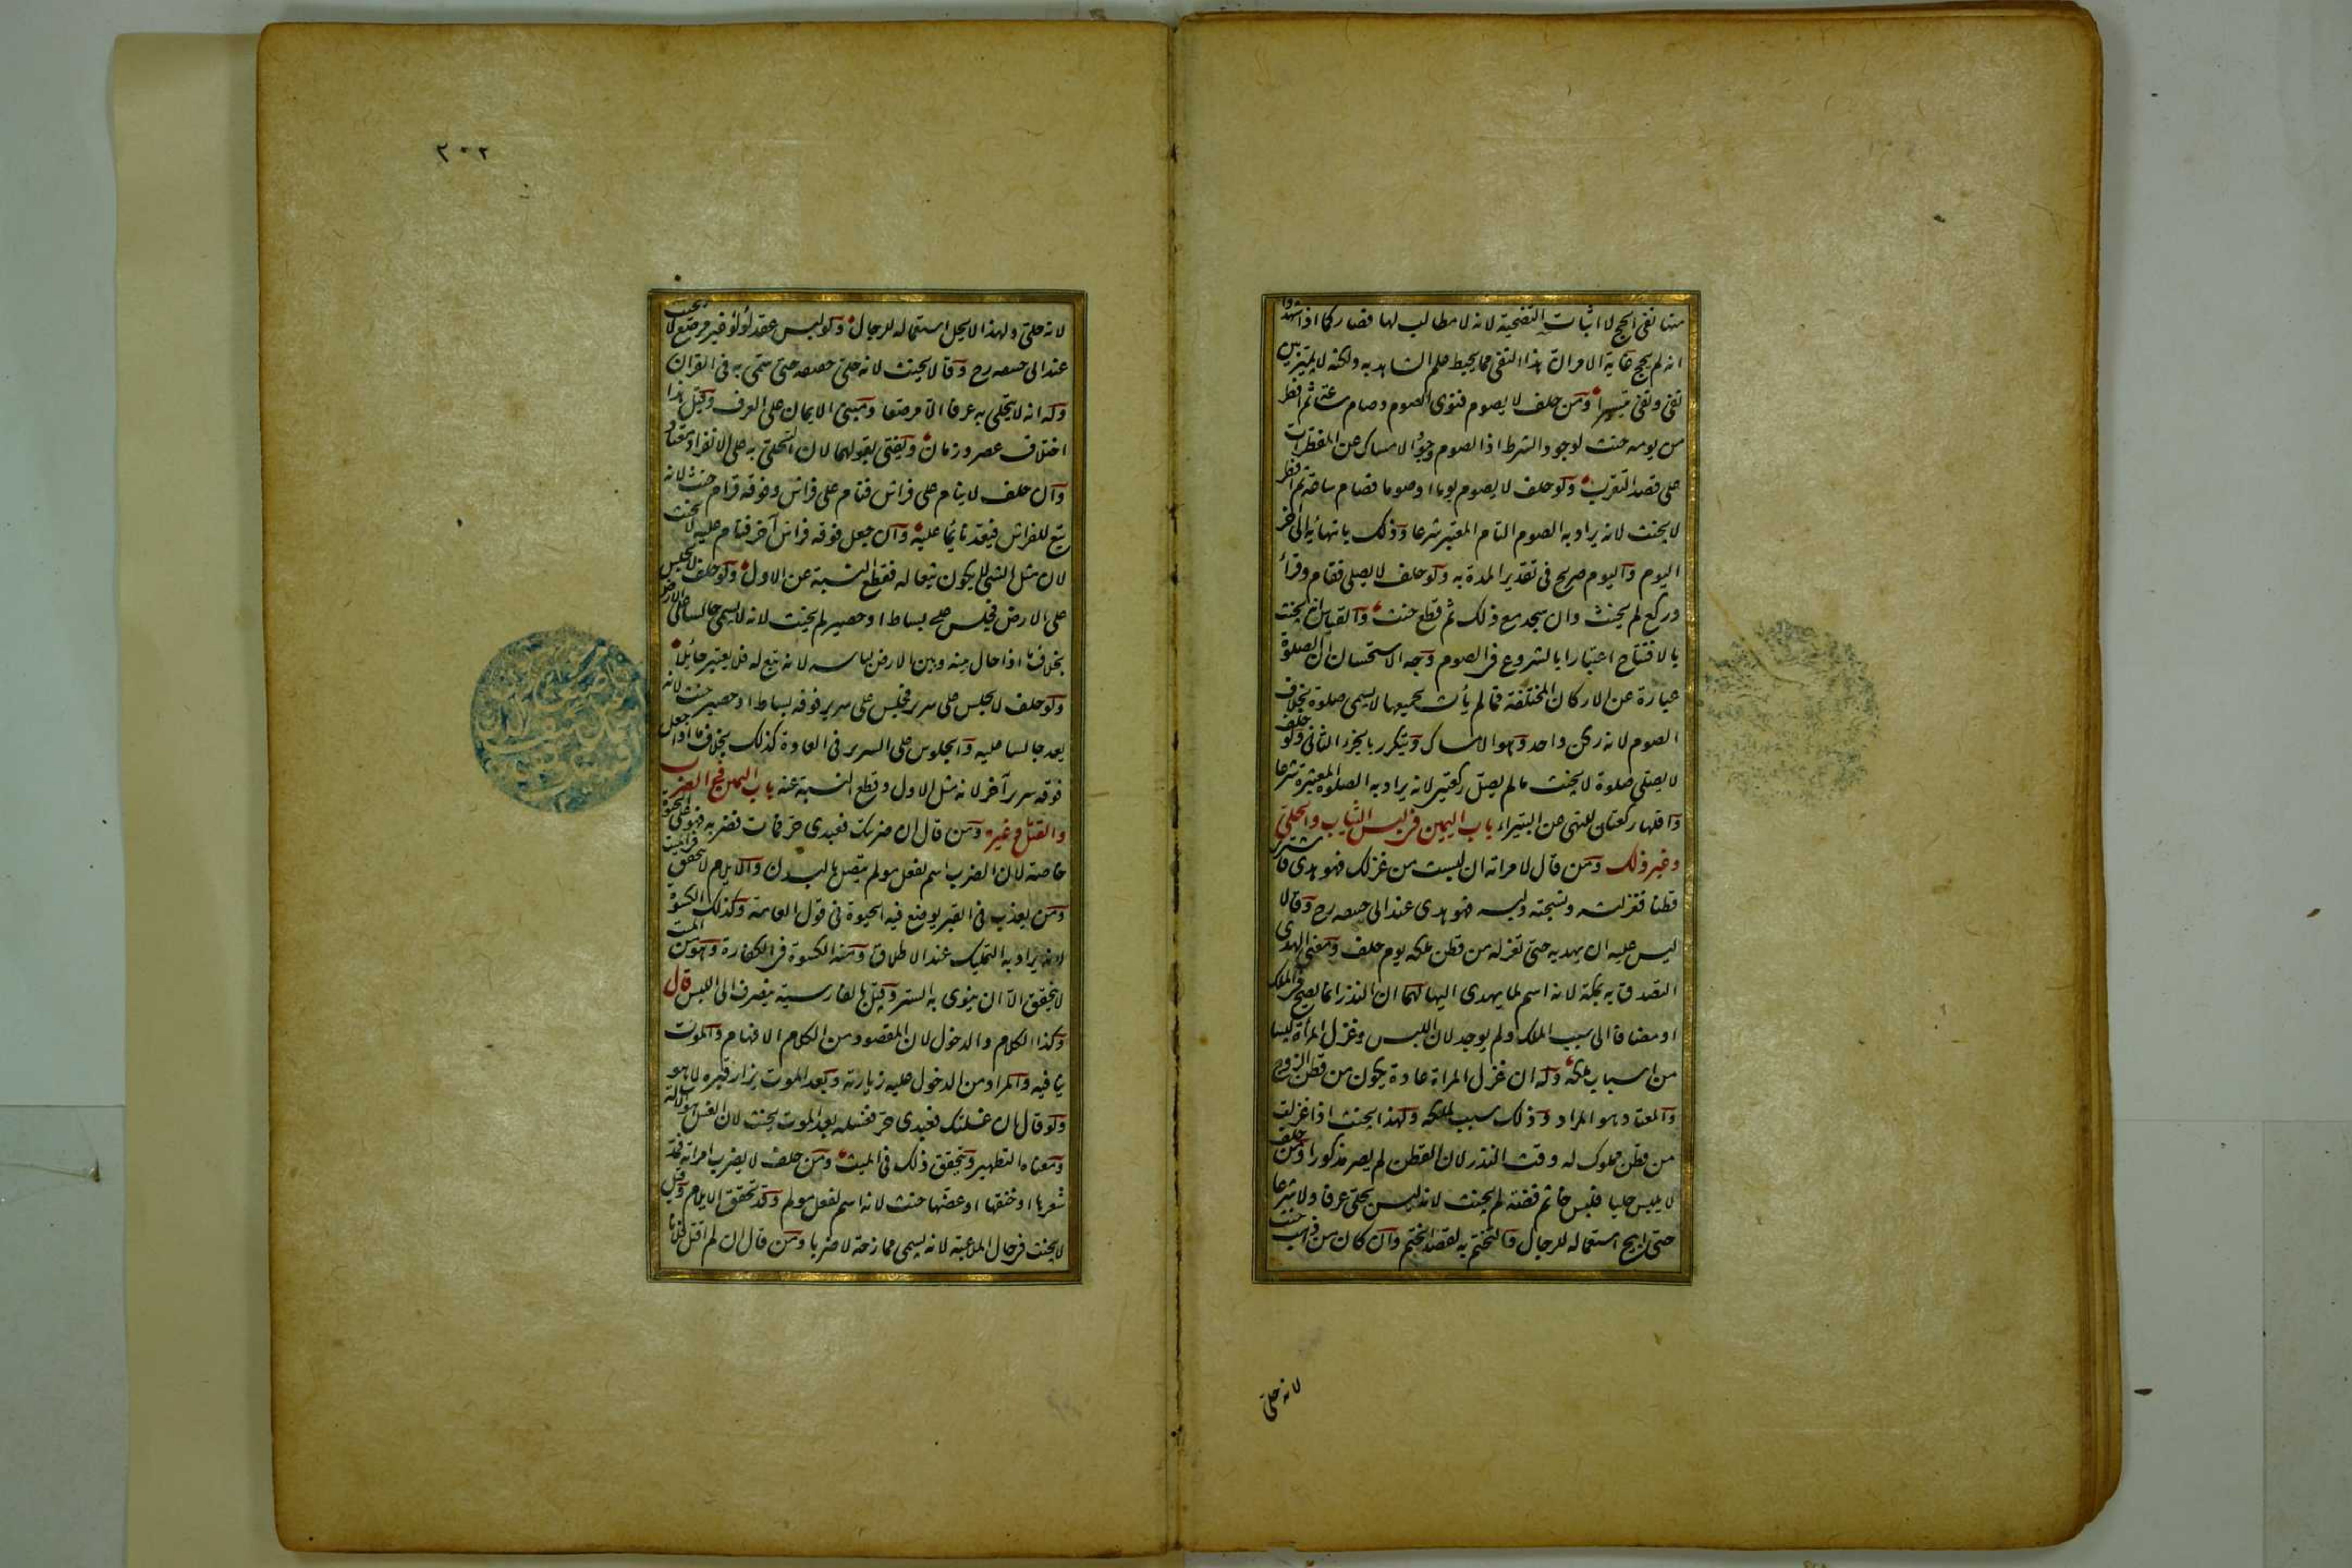 منها نفى الحج لا اثبات التضحية لانه لا مطالب لها فصار كما اذا شهدوا
انه لم يحج غاية الامر ان هذا النفى مما يحيط علم الشاهد به ولكنه لا يميز بين
نفى ونفى تيسيرا ومن حلف لا يصوم فنوى الصوم وصام ساعة ثم افطر
من يومه حنث لوجود الشرط اذ الصوم هو الامساك عن المفطرات
على قصد التقرب ولو حلف لا يصوم يوما او صوما فصام ساعة ثم افطر
لا يحنث لانه يراد به الصوم التام المعتبر شرعا وذلك بانتهائه الى آخر
اليوم واليوم صريح فى تقدير المدة به ولو حلف لا يصلى فقام وقرأ
وركع لم يحنث وان سجد مع ذلك ثم قطع حنث والقياس ان يحنث
بالافتتاح اعتبارا بالشروع فى الصوم وجه الاستحسان ان الصلوة
عبارة عن الاركان المختلفة فما لم يأت بجميعها لا يسمى صلوة بخلاف
الصوم لانه ركن واحد وهو الامساك ويتكرر بالجزء الثانى ولو حلف
لا يصلى صلوة لا يحنث ما لم يصل ركعتين لانه يراد به الصلوة المعتبرة شرعا
واقلها ركعتان للنهى عن البتيراء باب اليمين فى لبس الثياب والحلى
وغير ذلك ومن قال لامراته ان لبست من غزلك فهو هدى فاشترى
قطنا فغزلته ونسجته ولبسه فهو هدى عند ابى حنيفة رح وقالا
ليس عليه ان يهديه حتى تغزله من قطن ملكه يوم حلف ومعنى الهدى
التصدق به بمكة لانه اسم لما يهدى اليها لهما ان النذر انما يصح فى الملك
او مضافا الى سبب الملك ولم يوجد لان اللبس وغزل المرأة ليسا
من اسباب ملكه وله ان غزل المراة عادة يكون من قطن الزوج
والمعتاد هو المراد وذلك سبب لملكه ولهذا يحنث اذا غزلت
من قطن مملوك له وقت النذر لان القطن لم يصر مذكورا ومن حلف
لا يلبس حليا فلبس خاتم فضة لم يحنث لانه ليس بحلى عرفا ولا شرعا
حتى ابيح استعماله للرجال والتختم به لقصد الختم وان كان من ذهب حنث
لانه حلى
٢٠٢
لانه حلى ولهذا لا يحل استعماله للرجال ولو لبس عقد لؤلؤ غير مرصع لا يحنث
عند ابى حنيفة رح وقالا يحنث لانه حلى حقيقة حتى سمى به فى القرآن
وله انه لا يتحلى به عرفا الا مرصعا ومبنى الايمان على العرف وقيل هذا
اختلاف عصر وزمان ويفتى بقولهما لان التحلى به على الانفراد معتاد
وان حلف لا ينام على فراش فنام على فراش وفوقه قرام حنث لانه
تبع للفراش فيعد نائما عليه وان جعل فوقه فراش آخر فنام عليه لا يحنث
لان مثل الشئ لا يكون تبعا له فقطع النسبة عن الاول ولو حلف لا يجلس
على الارض فجلس على بساط او حصير لم يحنث لانه لا يسمى جالسا على الارض
بخلاف ما اذا حال بينه وبين الارض لباسه لانه تبع له فلا يعتبر حائلا
ولو حلف لا يجلس على سرير فجلس على سرير فوقه بساط او حصير حنث لانه
يعد جالسا عليه والجلوس على السرير فى العادة كذلك بخلاف ما اذا جعل
فوقه سرير آخر لانه مثل الاول وقطع النسبة عنه باب اليمين فى الضرب
والقتل وغيره ومن قال ان ضربتك فعبدى حر فمات فضربه فهو على الحيوة
خاصة لان الضرب اسم لفعل مولم يتصل بالبدن والايلام لا يتحقق فى الميت
ومن يعذب فى القبر يوضع فيه الحيوة فى قول العامة وكذلك الكسوة
لانه يراد به التمليك عند الاطلاق ومنه الكسوة فى الكفارة وهو من الميت
لا يتحقق الا ان ينوى به الستر وقيل بالفارسية ينصرف الى اللبس قال
وكذا الكلام والدخول لان المقصود من الكلام الافهام والموت
ينافيه والمراد من الدخول عليه زيارته وبعد الموت يزار قبره لا هو
ولو قال ان غسلتك فعبدى حر فغسله بعد الموت يحنث لان الغسل هو الاسالة
ومعناه التطهير ويتحقق ذلك فى الميت ومن حلف لا يضرب امراته فمد
شعرها او خنقها او عضها حنث لانه اسم لفعل مولم وقد تحقق الايلام وقيل
لا يحنث فى حال الملاعبة لانه يسمى ممازحة لا ضربا ومن قال ان لم اقتل فلانا